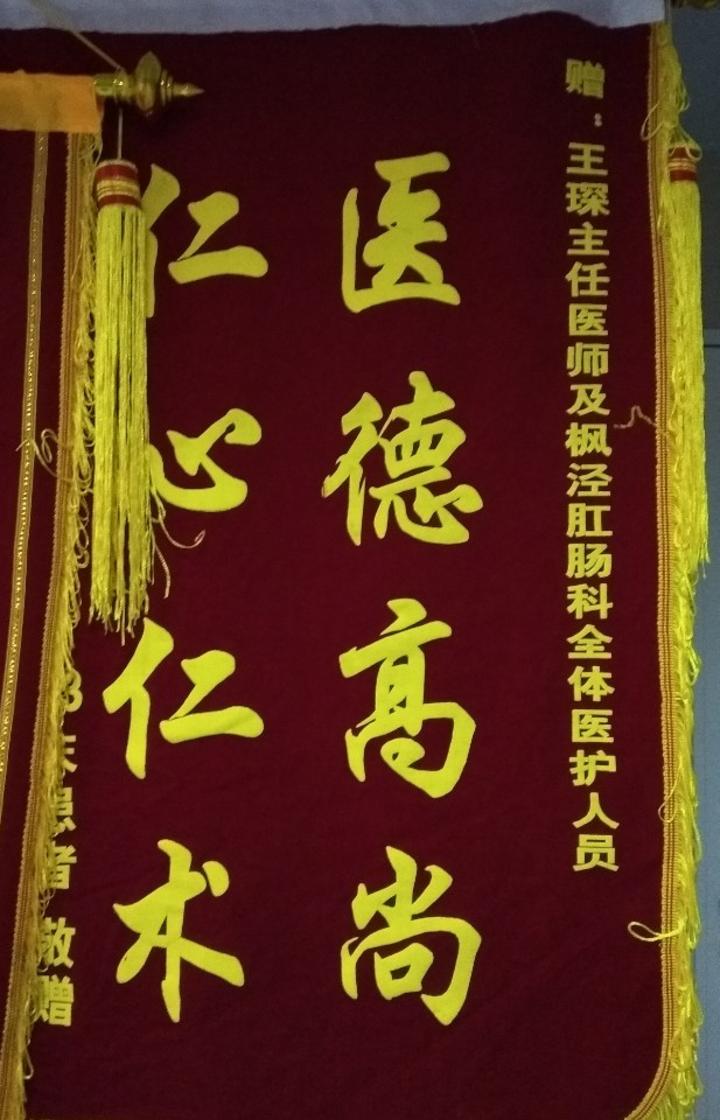 赠：王琛主任医师及枫泾肛肠科全体医护人员
医德高尚
仁心仁术
3床患者 敬赠